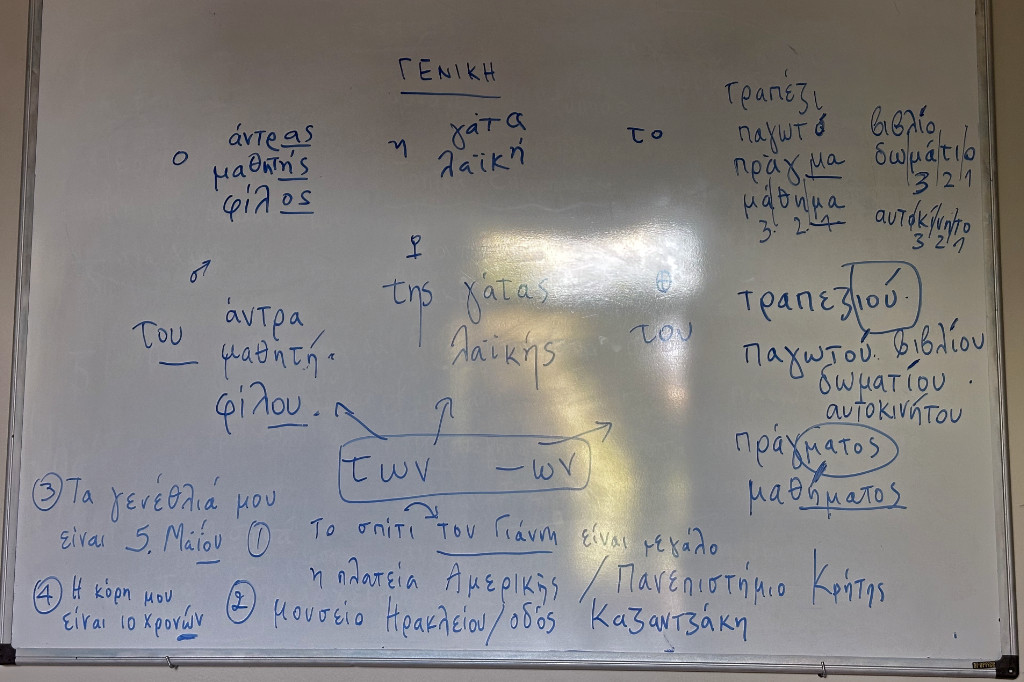 ΓΕΝΙΚΗ
ο
άντρας
μαθητής
φίλος
η
γάτα
λαϊκή
το
τραπέζι
παγωτό
πράγμα
μάθημα
3. 2. 1
βιβλίο
δωμάτιο
3 2 1
αυτοκίνητο
3 2 1
♂
του
άντρα
μαθητή
φίλου
♀
της γάτας
λαϊκής
του
τραπεζιού
παγωτού βιβλίου
δωματίου
αυτοκινήτου
πράγματος
μαθήματος
των -ων
③ Τα γενέθλιά μου
είναι 5. Μαΐου
① Το σπίτι του Γιάννη είναι μεγάλο
② η πλατεία Αμερικής / Πανεπιστήμιο Κρήτης
μουσείο Ηρακλείου/οδός Καζαντζάκη
④ Η κόρη μου
είναι 10 χρονών